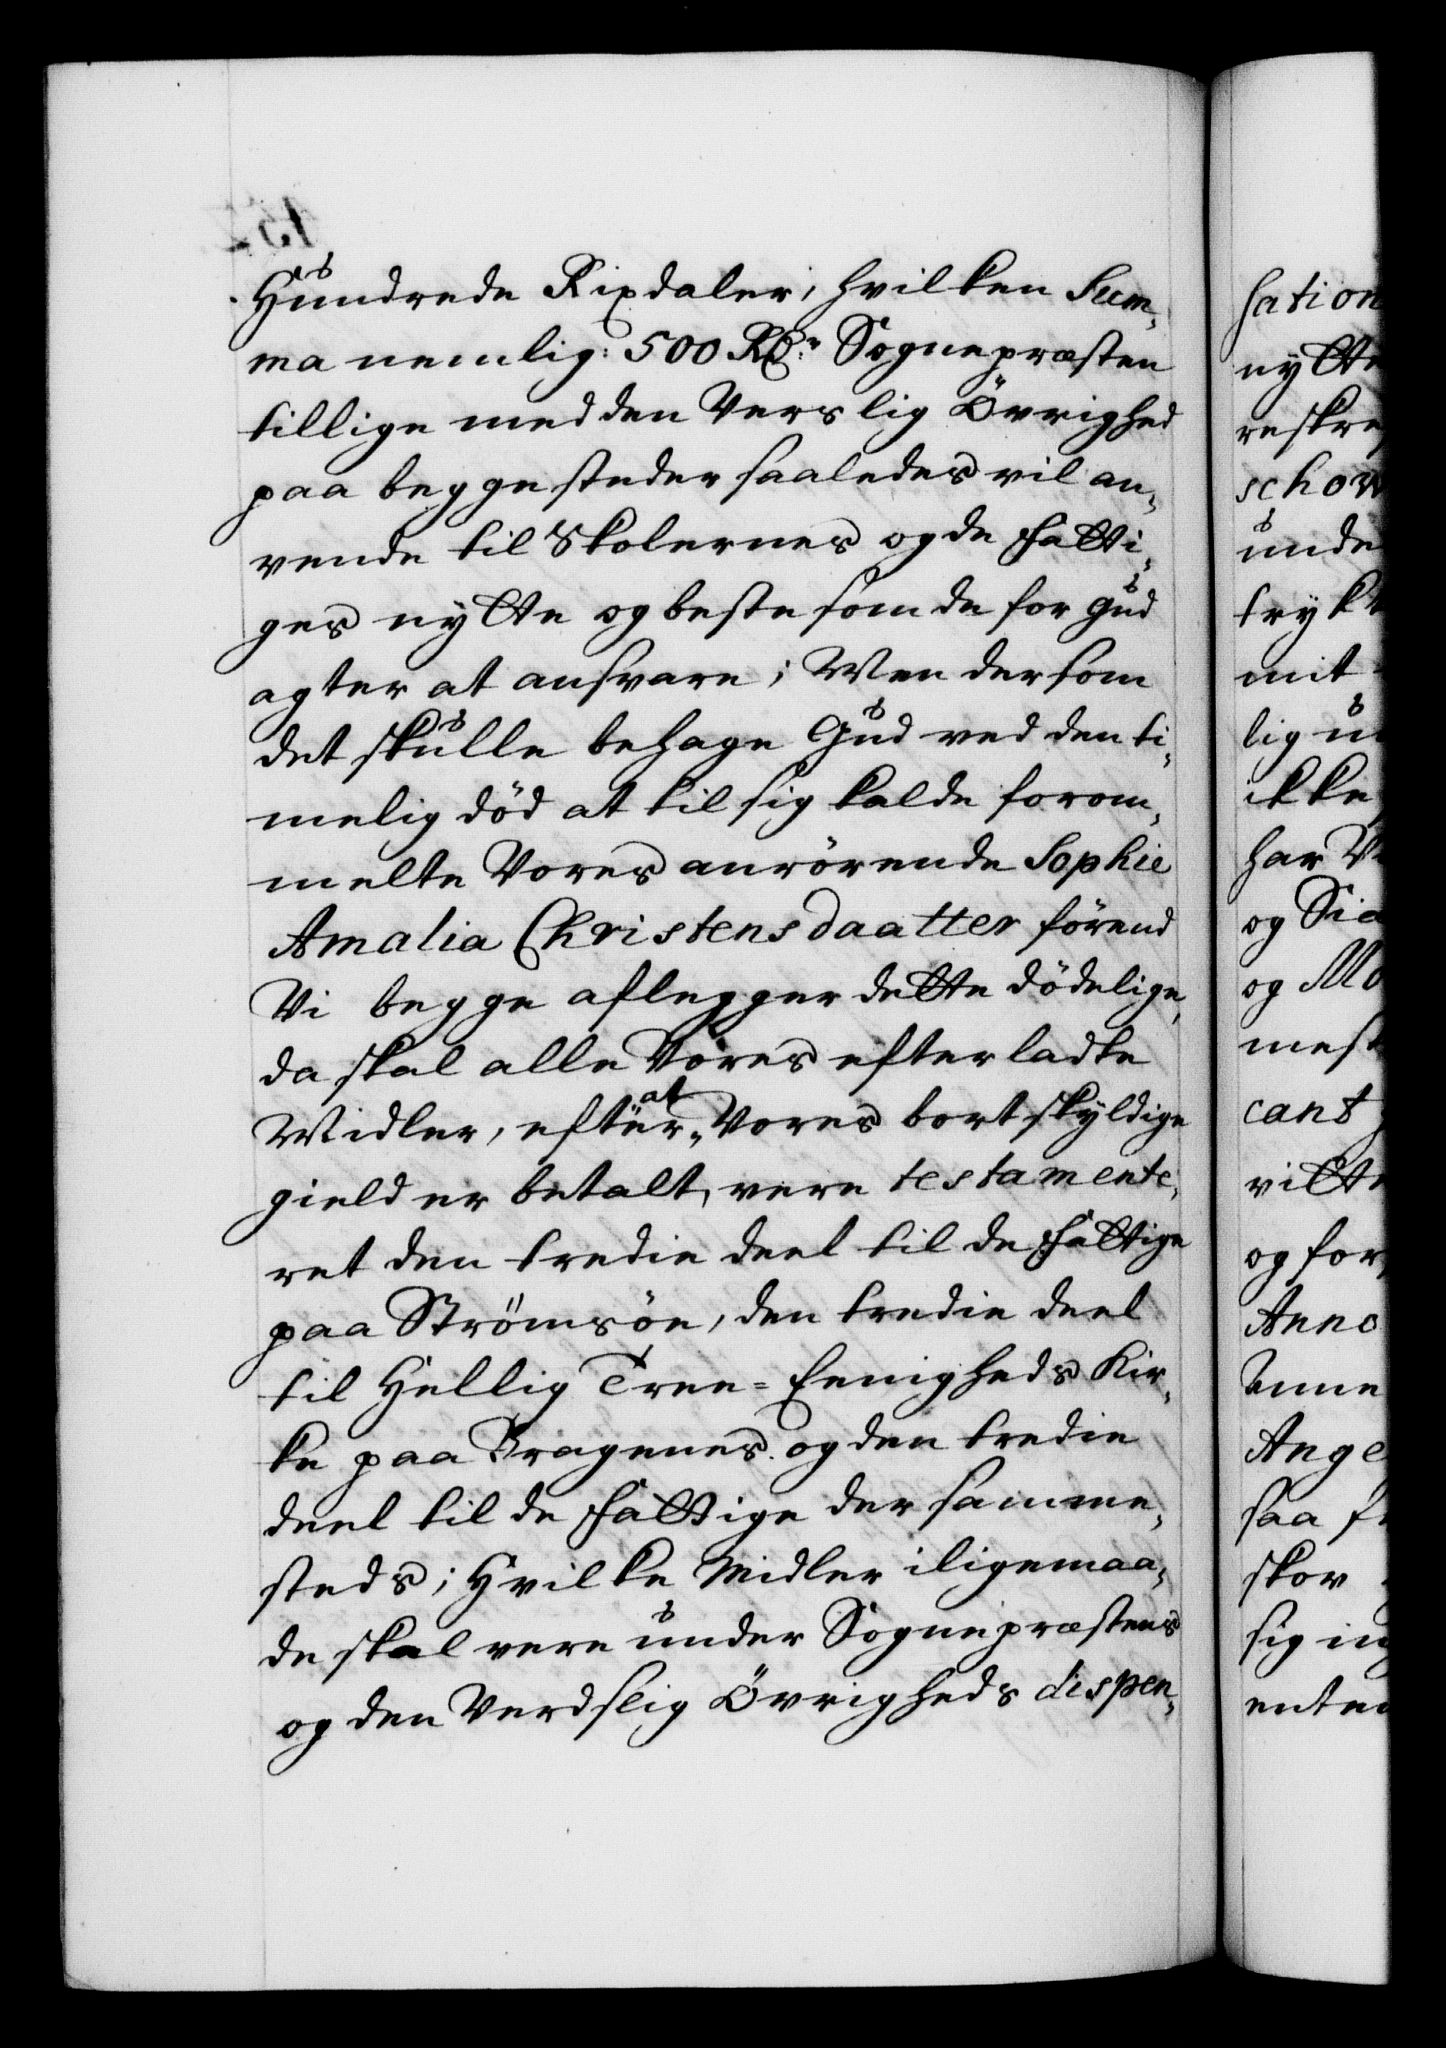 Hundrede Rixdaler, hvilken Sum¬
ma nemlig: 500 Rdr. Sognepræsten
tillige med den Verslig Övrighed
paa begge steder saaledes vil an¬
vende til Skolernes og de fatti¬
ges nytte og beste som de for Gud
agter at ansvare; Men dersom
det skulle behage Gud ved den ti¬
melig död at til sig kalde forom¬
melte Vores anrörende Sophie
Amalia Christensdaatter förend
Vi begge aflegger dette dödelige,
da skal alle Vores efterladte
Midler, efter at Vores bortskyldige
gield er betalt, vere testamente¬
ret den tredie deel til de fattige
paa Strömsöe, den tredie deel
til Hellig Tree=Eenigheds Kir¬
ke paa Bragenes. og den tredie
deel til de fattige der samme¬
steds; Hvilke Midler iligemaa¬
de skal vere under Sognepræstens
og den Verdslig Övrigheds dispen¬
sation
nytte
schow
unde
trykt
mit
ikke
har
og
og
cant
og for
Anno
saa
skov
sig